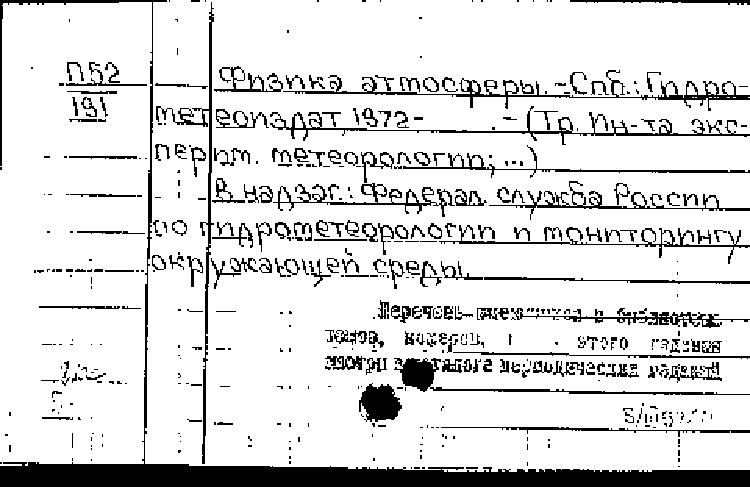 П52
191
Физика атмосферы. - Спб.: Гидро-
метеоиздат, 1972- . - (Тр. Ин-та экс-
перим. метеорологии; ...)
В надзаг.: Федерал. служба России
по гидрометеорологии и мониторингу
окружающей среды.
Перечень в библиотеке
томов, номеров, этого издания
смотри в каталоге периодических изданий